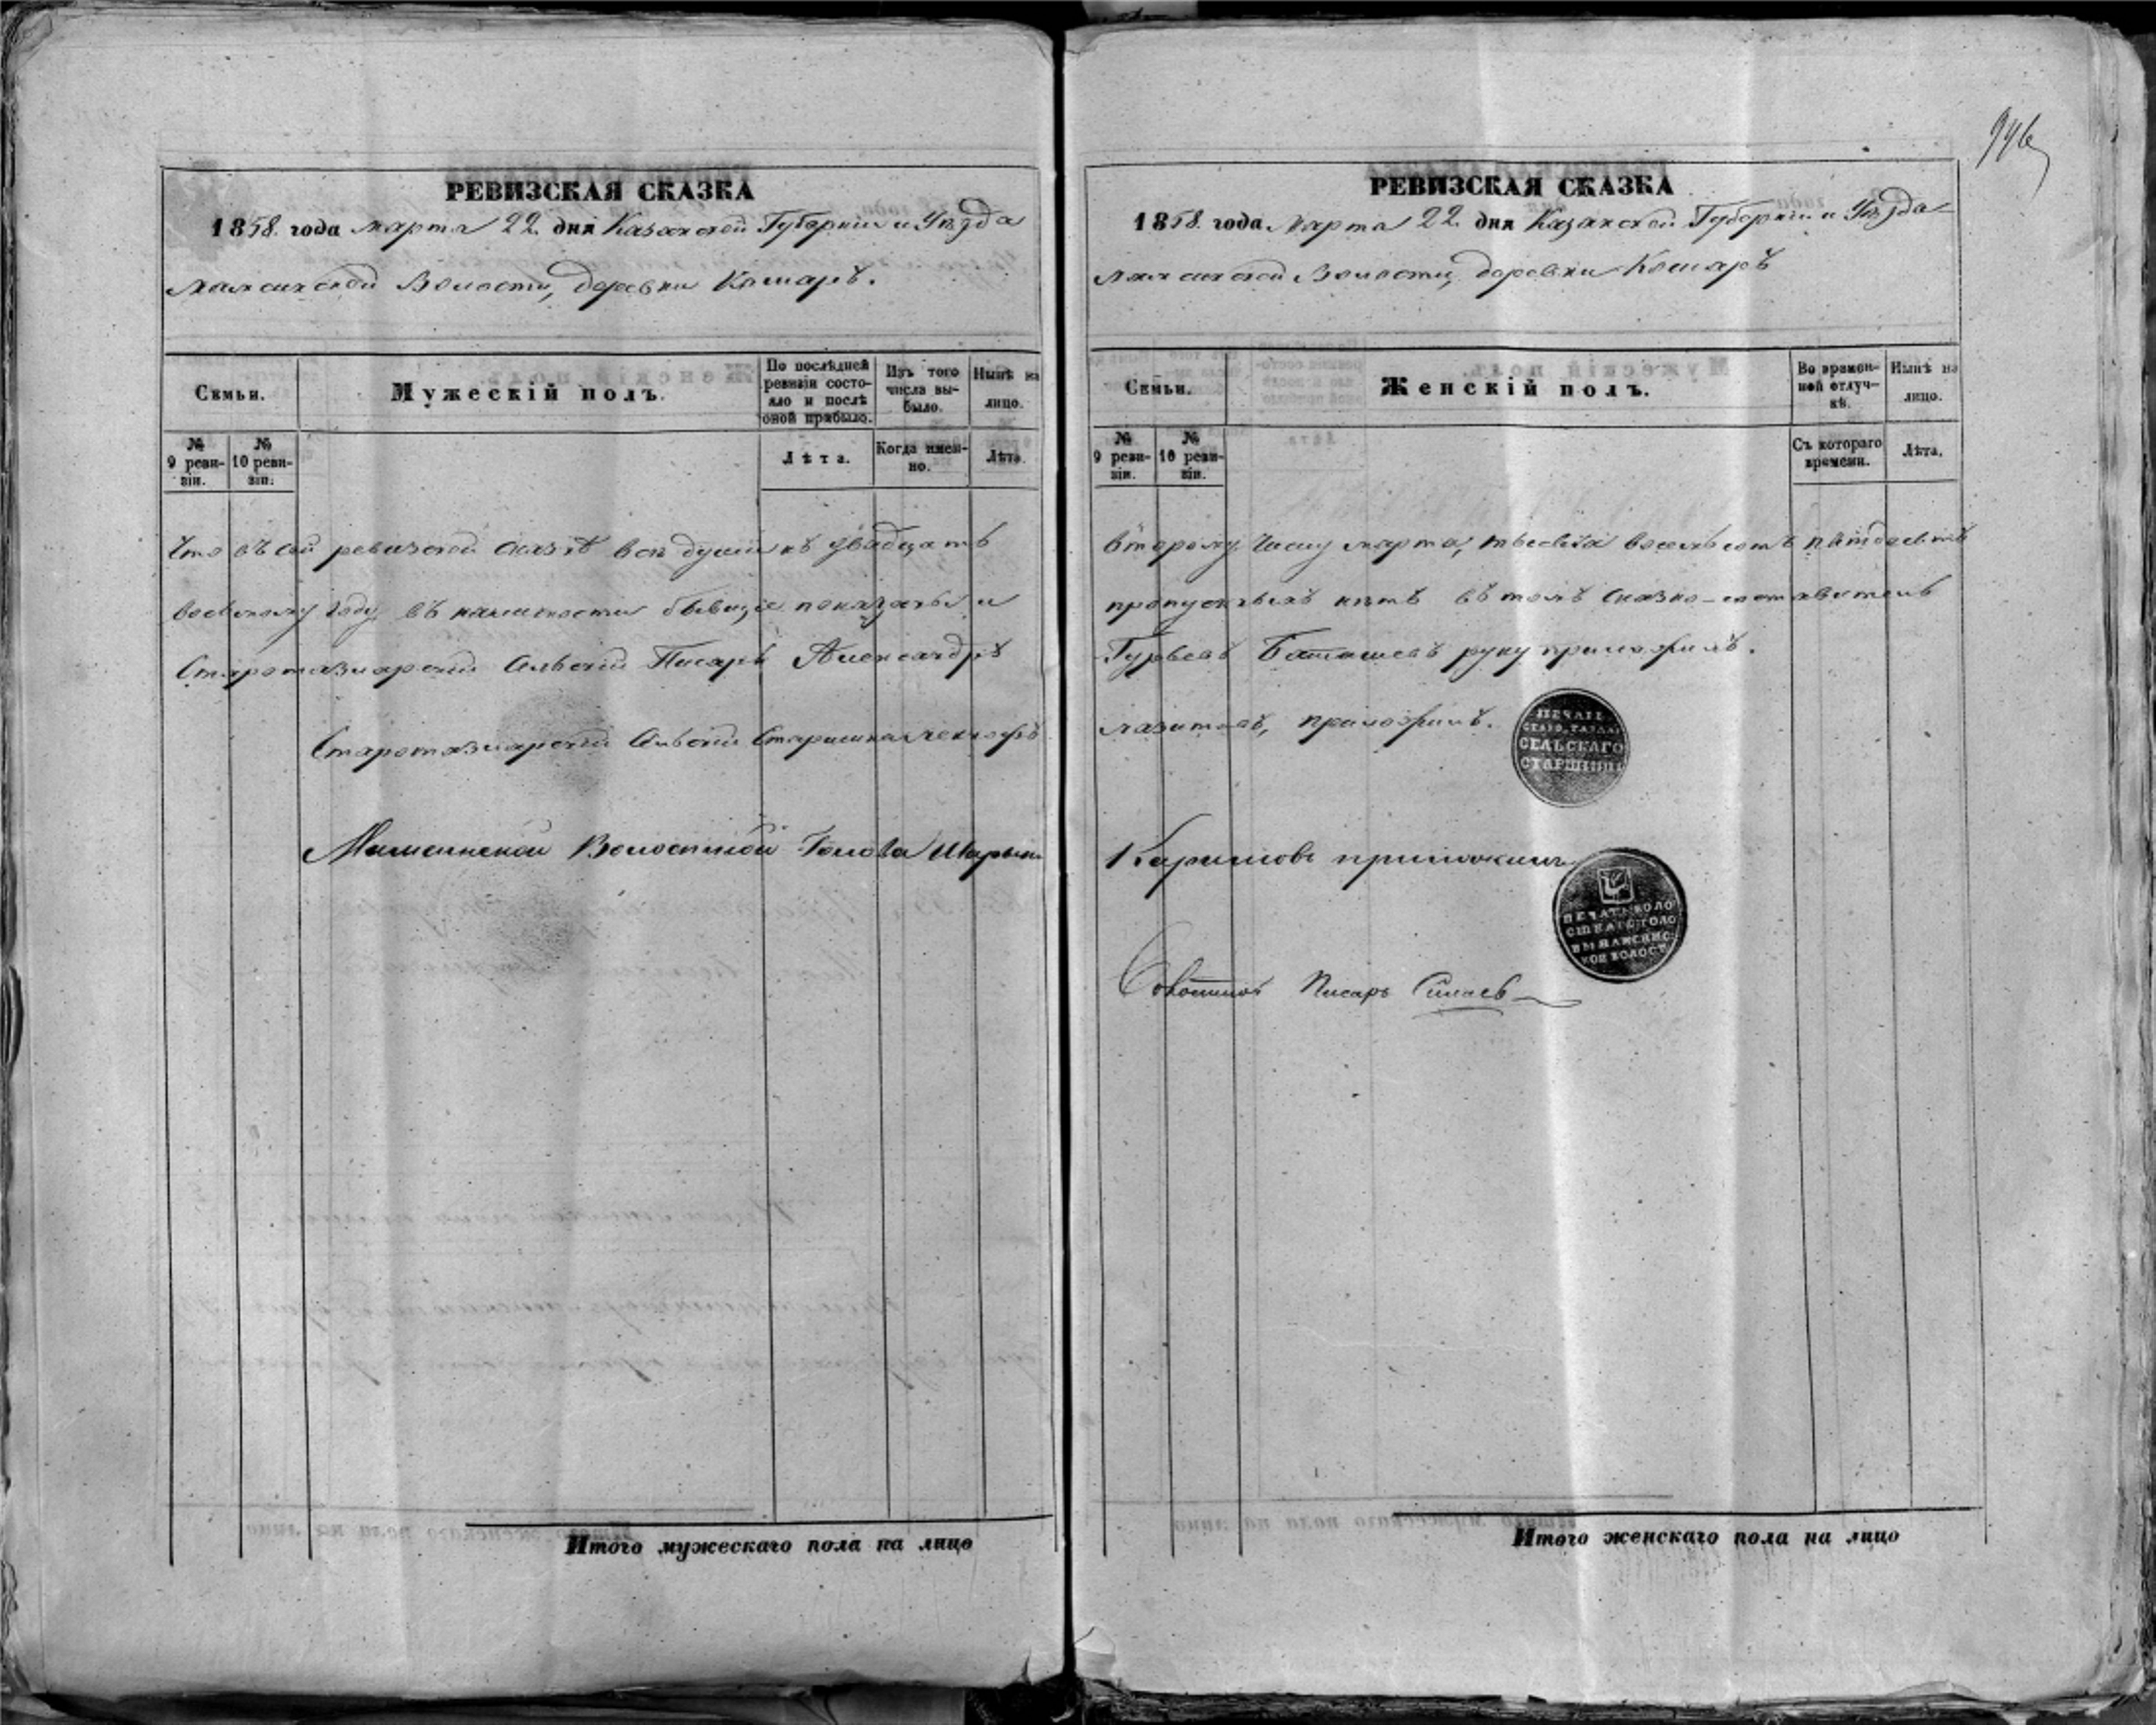 РЕВИЗСКАЯ СКАЗКА
1858. года марта 22 дня Казанской Губернии и Уѣзда
Волости, деревни Кошаръ.
Семьи.
Мужескій полъ.
По послѣдней ревизіи состояло и послѣ оной прибыло.
Изъ того числа выбыло.
Нынѣ на лицо.
№ 9 ревизіи.
№ 10 ревизіи.
Лѣта.
Когда именно.
Лѣта.
Что въ сей ревизской сказкѣ всѣ души къ двадцать
восьмому году въ наличности бывщіе показаны и
Старотазларскій Сельскій Писарь Александръ
Старотазларскій Сельскій Старшина
Волостной Голова
Итого мужескаго пола на лицо
946
РЕВИЗСКАЯ СКАЗКА
1858. года Марта 22 дня Казанской Губерніи и Уѣзда
Волости, деревни Кошаръ
Семьи.
Женскій полъ.
Во временной отлучкѣ.
Нынѣ на лицо.
№ 9 ревизіи.
№ 10 ревизіи.
Съ котораго времени.
Лѣта.
второму числу марта, тысяча восемьсотъ пятдесятъ
нѣтъ въ томъ сказко-составитель
Гурьевъ руку приложилъ.
приложилъ.
ПЕЧАТЬ
СЕЛЬСКАГО
СТАРШИНЫ
Каримовъ приложилъ
ПЕЧАТЬ ВОЛО
СТНАГО ГОЛО
ВЫ
КОЙ ВОЛОСТ
Писарь
Итого женскаго пола на лицо